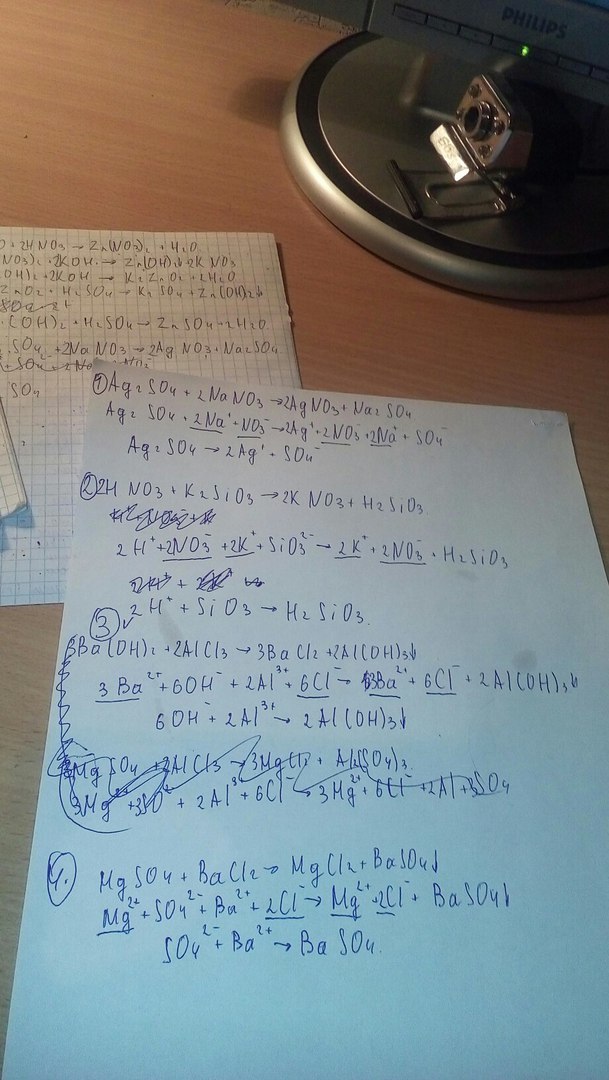 PHILIPS
+ 2HNO3 → Zn(NO3)2 + H2O
NO3)2 + 2KOH → Zn(OH)2↓ + 2KNO3
OH)2 + 2KOH → K2ZnO2 + 2H2O
ZnO2 + H2SO4 → K2SO4 + Zn(OH)2↓
(OH)2 + H2SO4 → ZnSO4 + 2H2O.
SO4 + 2NaNO3 → 2AgNO3 + Na2SO4
SO4
① Ag2SO4 + 2NaNO3 → 2AgNO3 + Na2SO4
Ag2SO4 + 2Na⁺ + NO3⁻ → 2Ag⁺ + 2NO3⁻ + 2Na⁺ + SO4⁻
Ag2SO4 → 2Ag⁺ + SO4⁻
② 2HNO3 + K2SiO3 → 2KNO3 + H2SiO3.
2H⁺ + 2NO3⁻ + 2K⁺ + SiO3²⁻ → 2K⁺ + 2NO3⁻ + H2SiO3
2H⁺ + SiO3 → H2SiO3.
③
3Ba(OH)2 + 2AlCl3 → 3BaCl2 + 2Al(OH)3↓
3Ba²⁺ + 6OH⁻ + 2Al³⁺ + 6Cl⁻ → 3Ba²⁺ + 6Cl⁻ + 2Al(OH)3↓
6OH⁻ + 2Al³⁺ → 2Al(OH)3↓
3MgSO4 + 2AlCl3 → 3MgCl2 + Al2(SO4)3.
3Mg²⁺ + 3SO²⁻ + 2Al³ + 6Cl⁻ → 3Mg²⁺ + 6Cl⁻ + 2Al + 3SO4
4. MgSO4 + BaCl2 → MgCl2 + BaSO4↓
Mg²⁺ + SO4²⁻ + Ba²⁺ + 2Cl⁻ → Mg²⁺ + 2Cl⁻ + BaSO4↓
SO4²⁻ + Ba²⁺ → BaSO4.